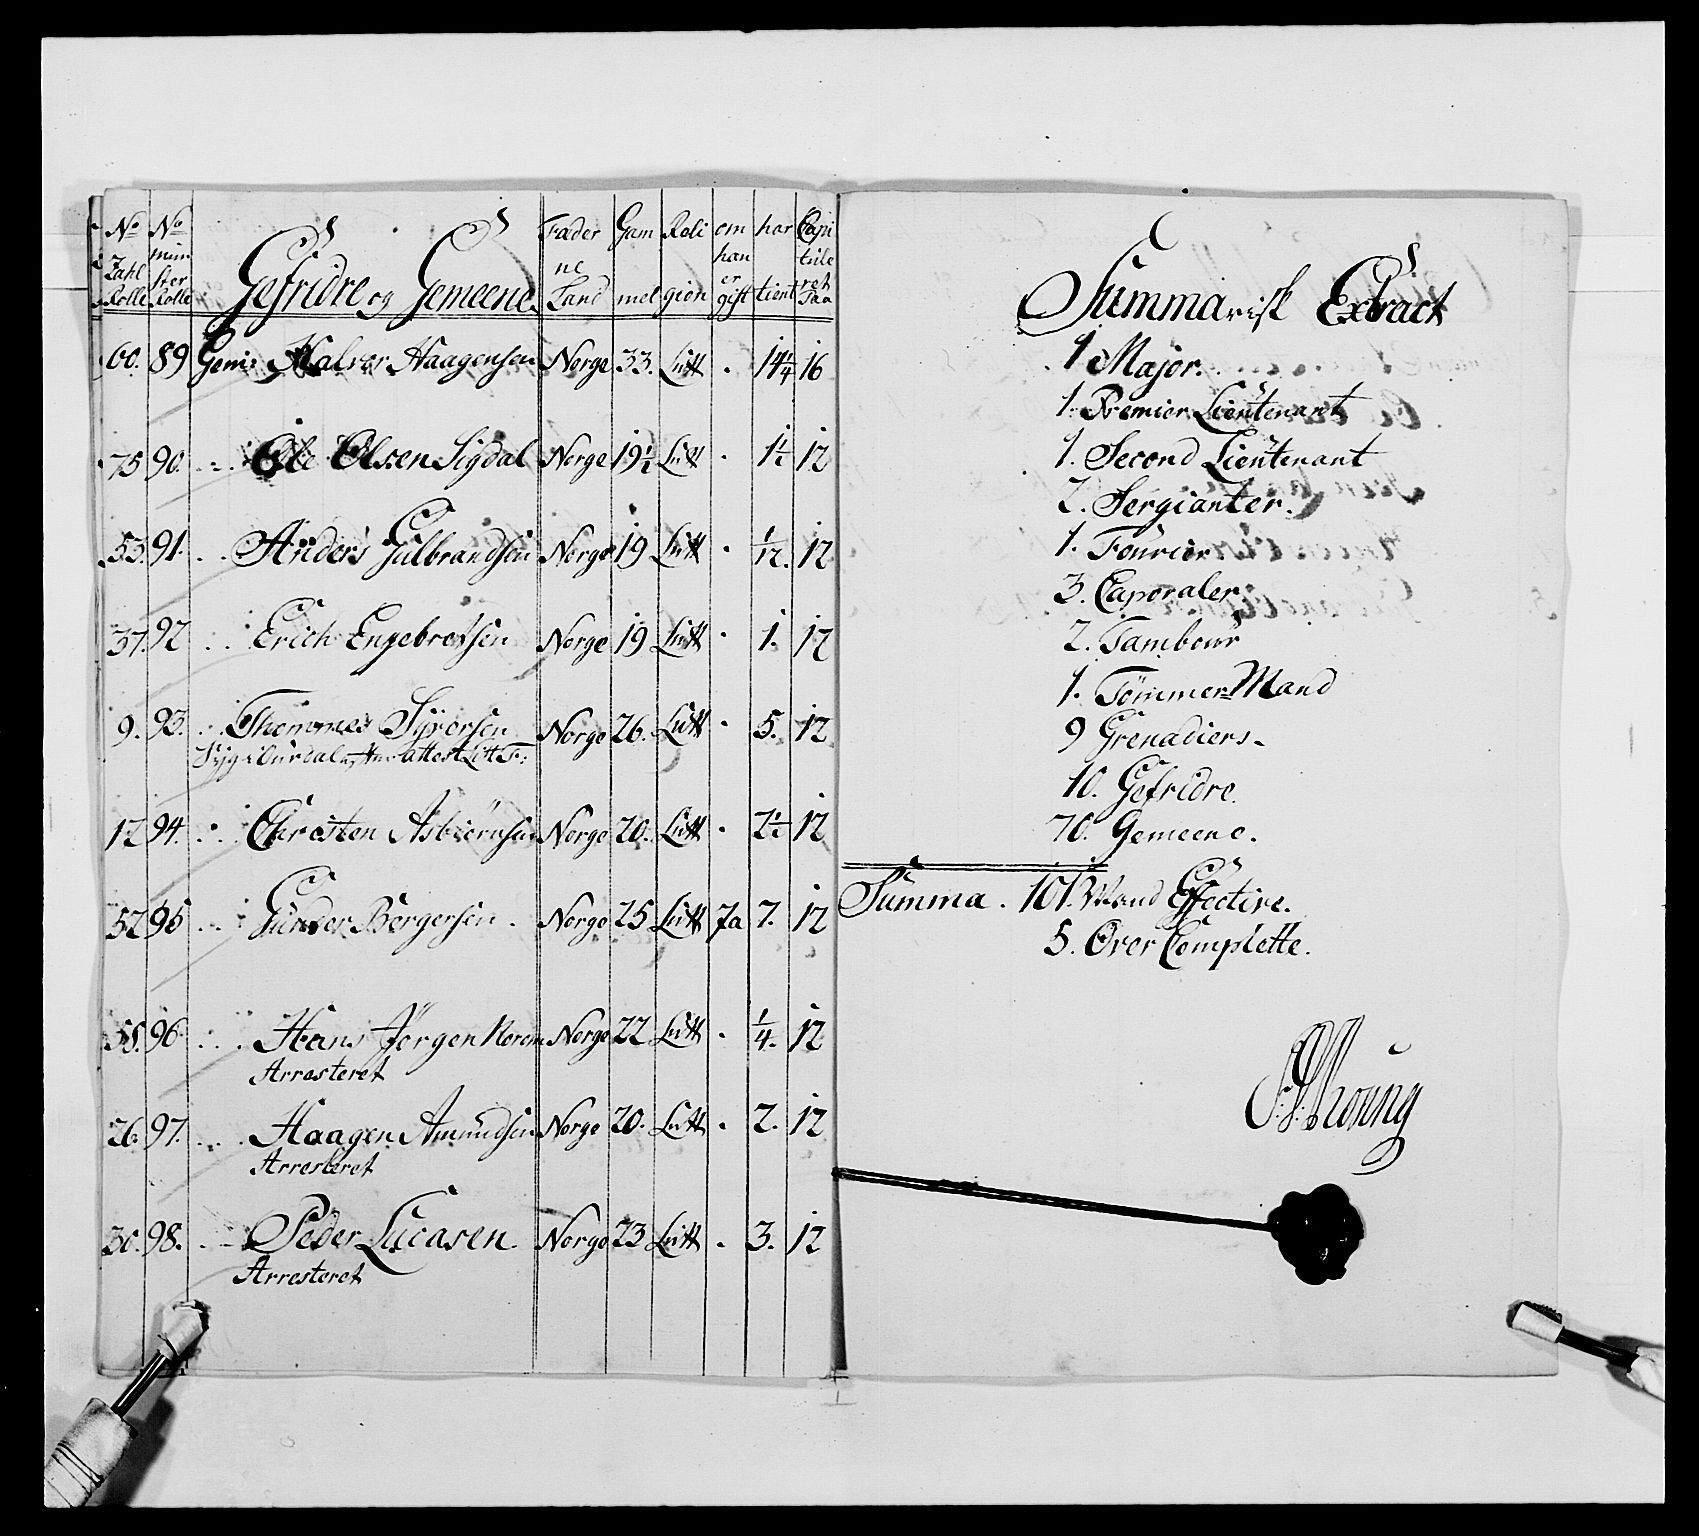 No Zahl Rolle | No münster Rolle | Gefridre og Gemeene. | Fæderne Land | Gammel | Religion | om han er gift | har tient | Capituleret Paa
60. 89 Gem: Halvor Haagensen Norge 33. Lutt . 14 1/4 16
75 90. Ole Olsen Sigdal Norge 19 1/2 Lutt . 1 1/2 12
53. 91. Anders Gulbrandsen Norge 19 Lutt . 1/12. 12
37. 92 Erich Engebretsen Norge 19 Lutt . 1. 12
9. 93. Thommes Syversen Norge 26. Lutt . 5. 12
Syg i attest Litt F:
12 94. Christen Asbiørnsen Norge 20. Lutt . 2 1/2 12
52 95 Gunder Børgersen . Norge 25 Lutt Ja 7. 12
55. 96 Hans Jørgen Norge 22 Lutt . 1/4. 12
Arresteret
26. 97. Haagen Amundsen Norge 20. Lutt . 2. 12
Arresteret
30. 98. Peder Lucasen. Norge 23 Lutt . 3. 12
Arresteret
Summarisk Extract
1 Major.
1. Premier Lieutenant
1. Second Lieutenant
2. Sergianter.
1. Fourier
3. Caporaler
2. Tambour
1. Tømmer=Mand
9 Grenadiers
10. Gefridre.
70. Gemeene.
Summa. 101. Mand Effective.
5. Over Complette.